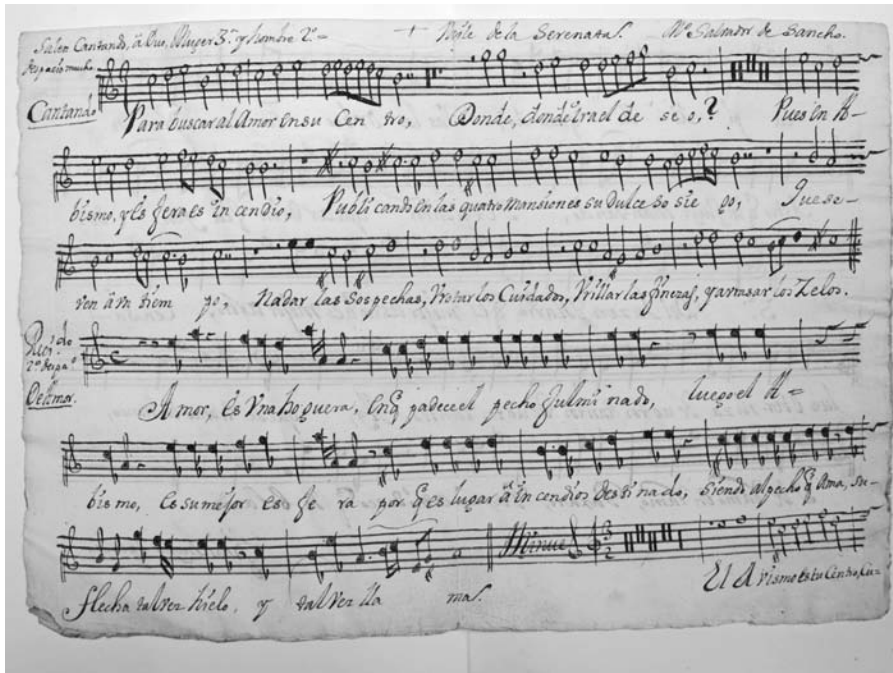 Salen Cantando, â Duo, Muger 3ª. y hombre 2º. = + Bayle de la Serenata. Mº. Salvador de Sancho.
despacio mucho.
Cantando Para buscar al Amor en su Cen tro, Donde, donde trael de se o,? Pues en A-
bismo, y Esfera es in cendio, Publi cando en las quatro mansiones su dulce so sie go, Que se-
ven â un tiem po, Nadar las Sospechas, Brotar los Cuidados, Brillar las finezas, y avrasar los Zelos.
Reci.do
2º. despº.
Del Amor. A mor, es Vna ho guera, En q padece el pecho fulmi nado, luego el A=
bis mo, es su mejor es fe ra por q es lugar â in cendios desti nado, siendo al pecho q Ama, su-
Minue
flecha tal vez hielo, y tal vez lla mas. El Avismo es tu Centro, Cu=